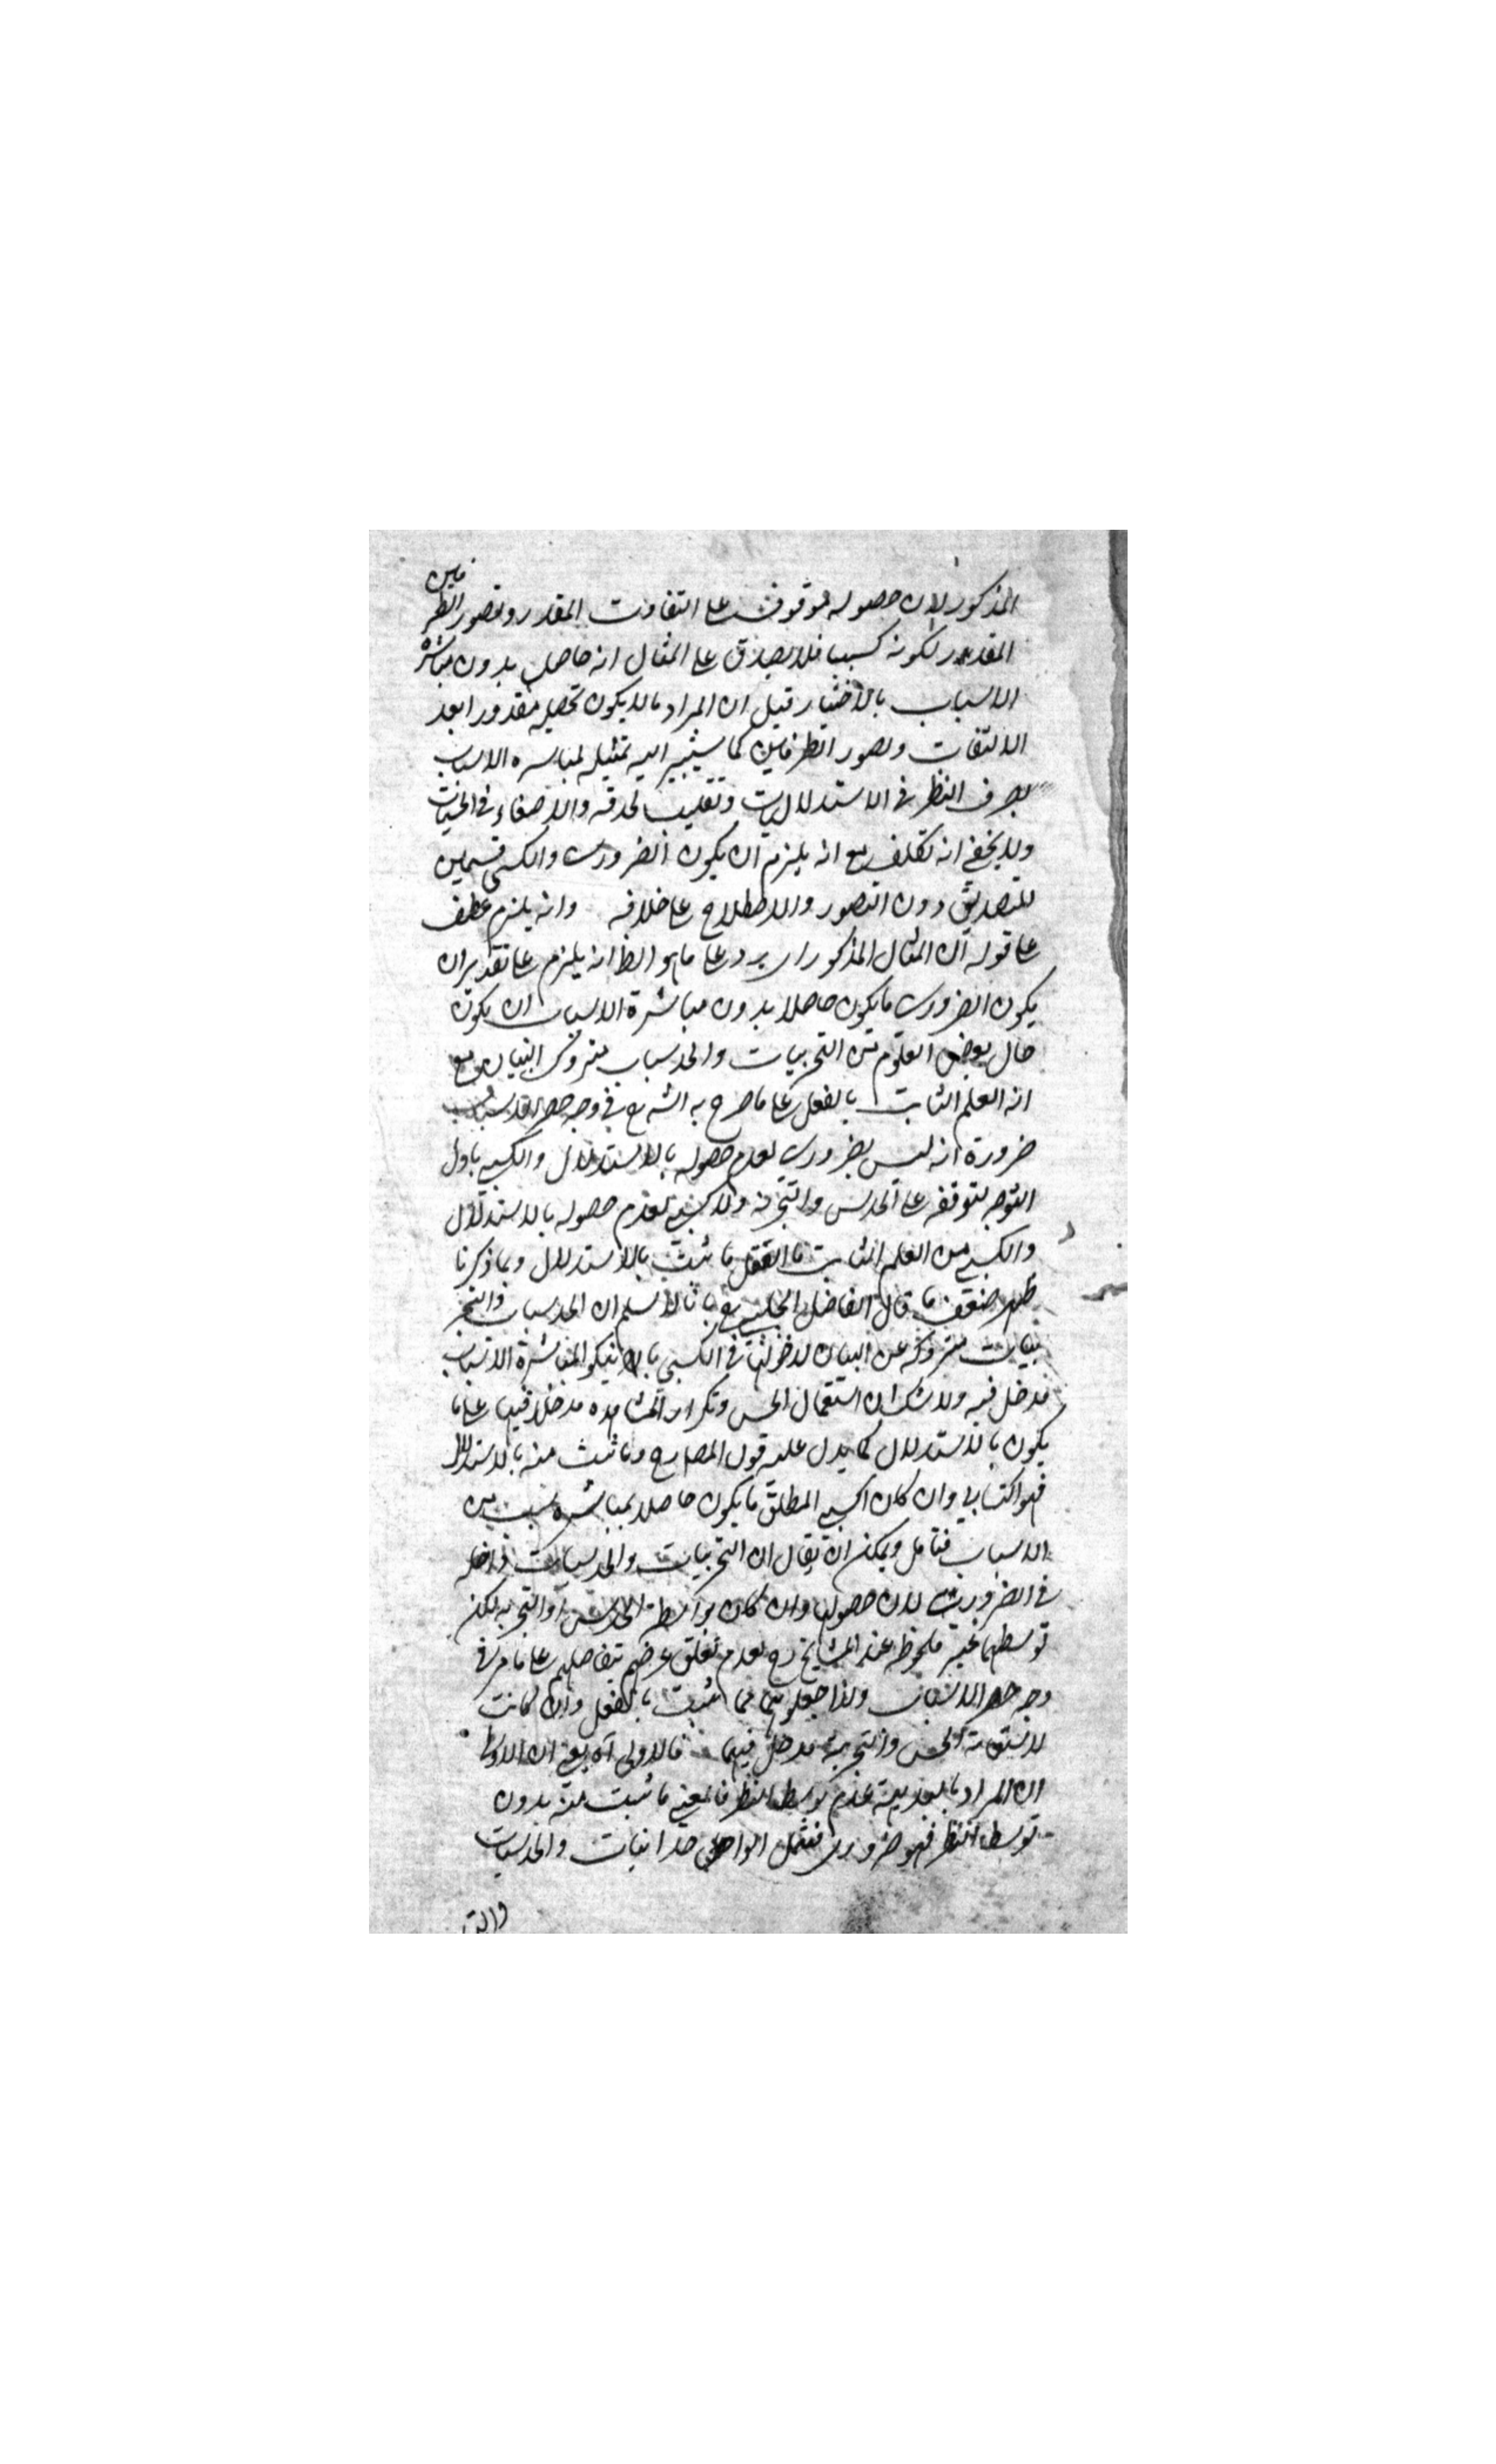 المذكور لان حصوله موقوف على التفات المقدر وتصور الطرفين
المقدور لكونه كسبيا فلا يصدق على المثال انه حاصل بدون مباشرة
الاسباب بالاختيار قيل ان المراد ما لا يكون تحصيله مقدورا بعد
الالتفات وتصور الطرفين كما يشير اليه تمثيله لمباشرة الاسباب
بصرف النظر في الاستدلاليات وتقليب الحدقة والاصغاء في الحسيات
ولا يخفى انه تكلف مع انه يلزم ان يكون الضروري والكسبي قسمين
للتصديق دون التصور والاصطلاح على خلافه وانه يلزم عطف
على قوله ان المثال المذكور اي يرد على ما هو الظ انه يلزم على تقدير ان
يكون الضروري ما يكون حاصلا بدون مباشرة الاسباب ان يكون
حال بعض العلوم من التجربيات والحدسيات متروك البيان مع
انه العلم الثابت بالفعل على ما صرح به الشه رح في وجه حصر الاسباب
ضرورة انه ليس بضروري لعدم حصوله بالاستدلال والكسبي باول
التوجه لتوقفه على الحدس والتجربة ولا كسبي لعدم حصوله بالاستدلال
والكسبي من العلم الثابت بالعقل ما ثبت بالاستدلال وبما ذكرنا
ظهر ضعف ما قال الفاضل الجلبي رح بانا لا نسلم ان الحدسيات والتجر
بيات متروكة عن البيان لدخولها في الكسبي بالا يكون لمباشرة الاسباب
مدخل فيه ولا شك ان استعمال الحس وتكرار المشاهدة مدخلا فيها على ما
يكون بالاستدلال كما يدل عليه قول المص رح وما ثبت منه بالاستدلال
فهو اكتسابي وان كان الكسبي المطلق ما يكون حاصلا بمباشرة سبب من
الاسباب فتامل ويمكن ان يقال ان التجربيات والحدسيات داخلة
في الضروري لان حصولها وان كان بواسطة الحدس او التجربة لكن
توسطهما غير ملحوظة عند المشايخ رح لعدم تعلق غرضهم بتفاصيلهم على ما مر في
وجه حصر الاسباب ولذا جعلوهما مما ثبت بالعقل وان كانت
لاستعانة الحس والتجربة مدخل فيهما فالاولى اه يعني ان الاولى
ان المراد بالبديهة عدم توسط النظر فالمعنى ما ثبت منه بدون
توسط النظر فهو ضروري فيشمل الوجدانيات والحدسيات